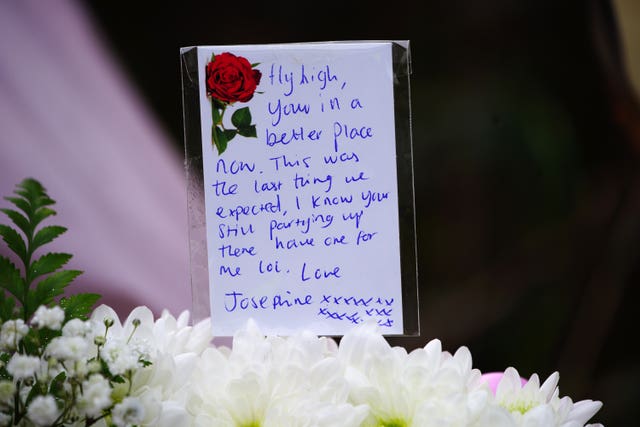 fly high,
your in a
better place
now. This was
the last thing we
expected, I know your
still partying up
there have one for
me lol. Love
Josephine xxxxxxxx
xxxxxxxxx